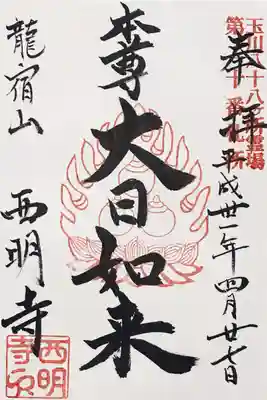 玉川八十八所霊場
奉拝
平成廿一年四月廿七日
本尊
大日如来
龍宿山
西明寺
西明
寺印